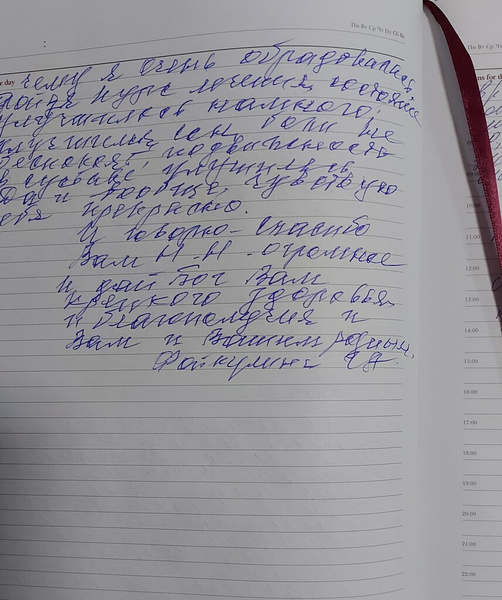 Пн Вт Ср Чт Пт Сб Вс
e day
чему я очень обрадовалась
пройдя курс лечения, состояние
улучшилось намного,
улучшился сон, боли не
беспокоят, подвижность
в суставе, улучшилась
Да и вообще, чувствую
себя прекрасно.
И говорю - спасибо
Вам Н.Н. огромное
и дай Бог Вам
крепкого здоровья
и благополучия и
Вам и Вашим родным.
Пн Вт Ср
ns for th
11:00
12:00
13:00
14:00
15:00
17:00
18:00
19:00
20:00
21:00
22:00